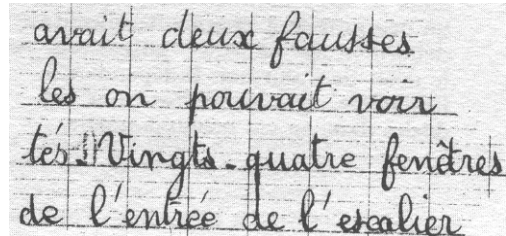 avait deux fausses
les on pouvait voir
tés. Vingts-quatre fenêtres
de l'entrée de l'escalier